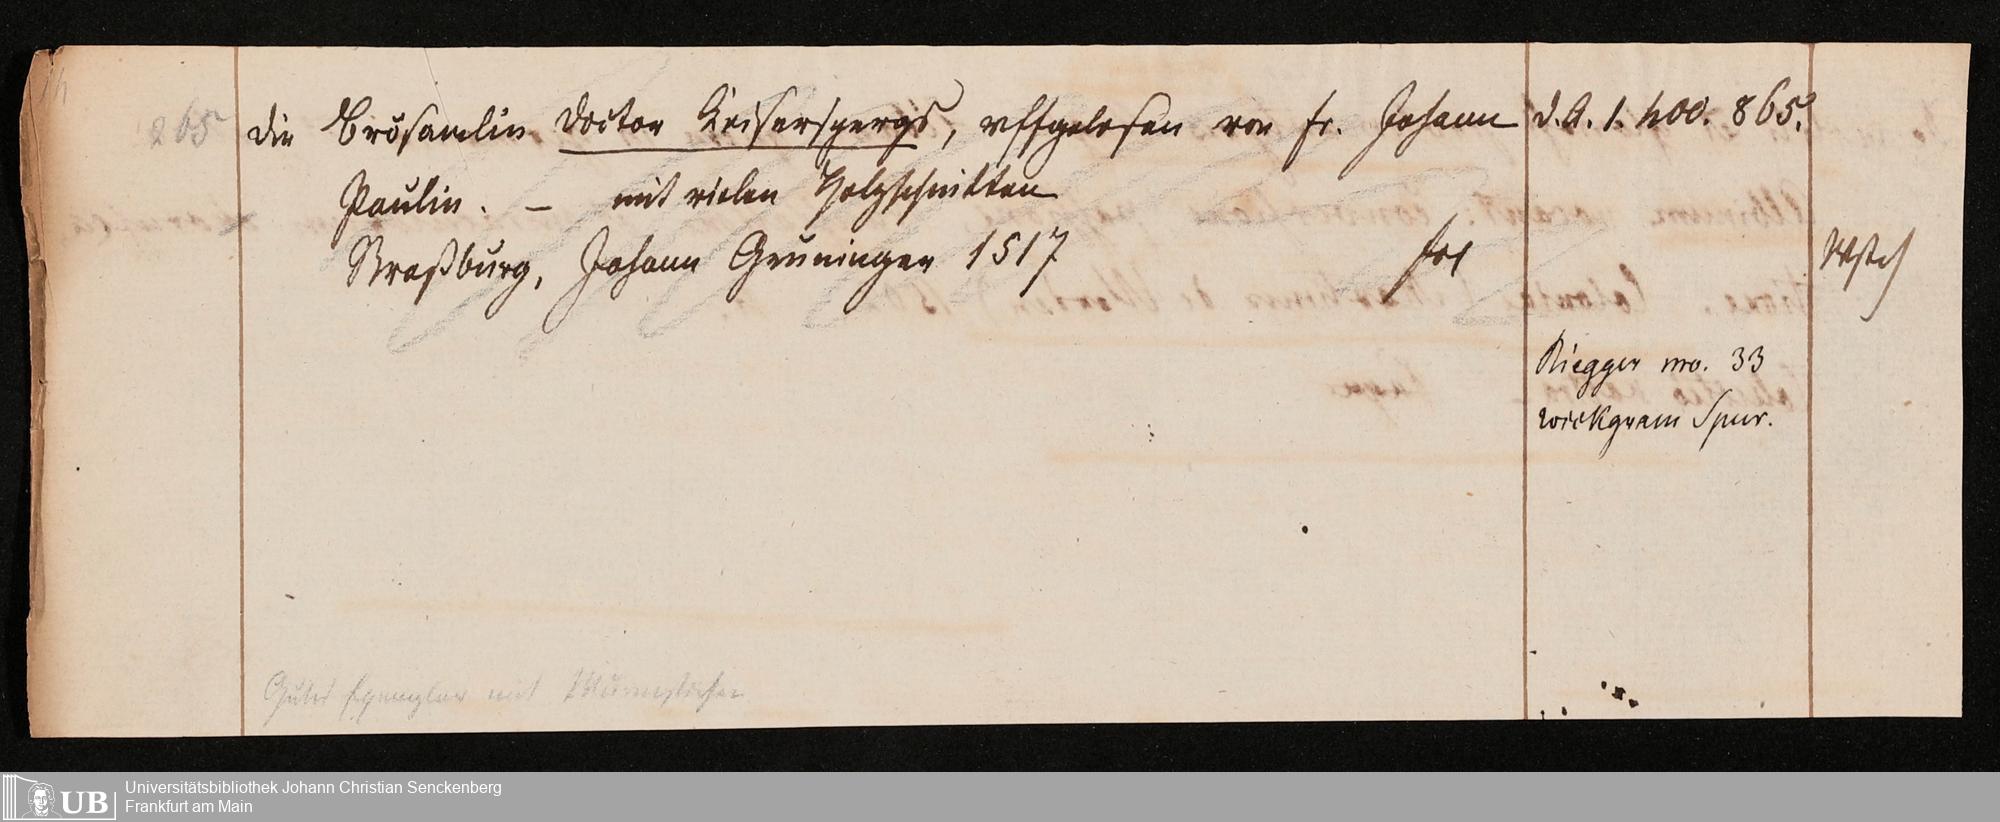 865
die Brösamlin doctor Keiserspergs, uffgelesen von fr. Johann
Paulin. – mit vielen Holzschnitten
Straßburg, Johann Gruninger 1517 fol
d. A. 1. 400. 865.
Riegger nro. 33
wickgram Spur.
Gutes Exemplar mit Wurmstichen
Universitätsbibliothek Johann Christian Senckenberg
Frankfurt am Main
UB